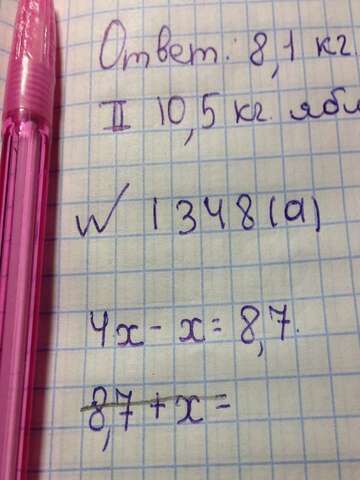 Ответ: 8,1 кг.
II 10,5 кг. ябл
№ 1348(а)
4x - x = 8,7.
8,7 + x =